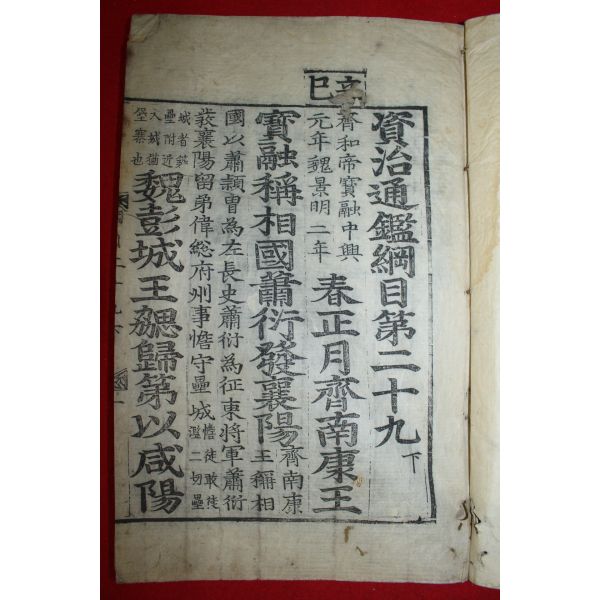 辛巳
資治通鑑綱目第二十九下
齊和帝寶融中興
元年魏景明二年
春正月齊南康王
寶融稱相國蕭衍發襄陽
齊南康
王稱相
國以蕭穎冑為左長史蕭衍為征東將軍蕭衍
發襄陽留弟偉總府州事憺守壘城
憺徒敢徒
濫二切壘
城者築
壘附近
大城猶
堡寨也
魏彭城王勰歸第以咸陽